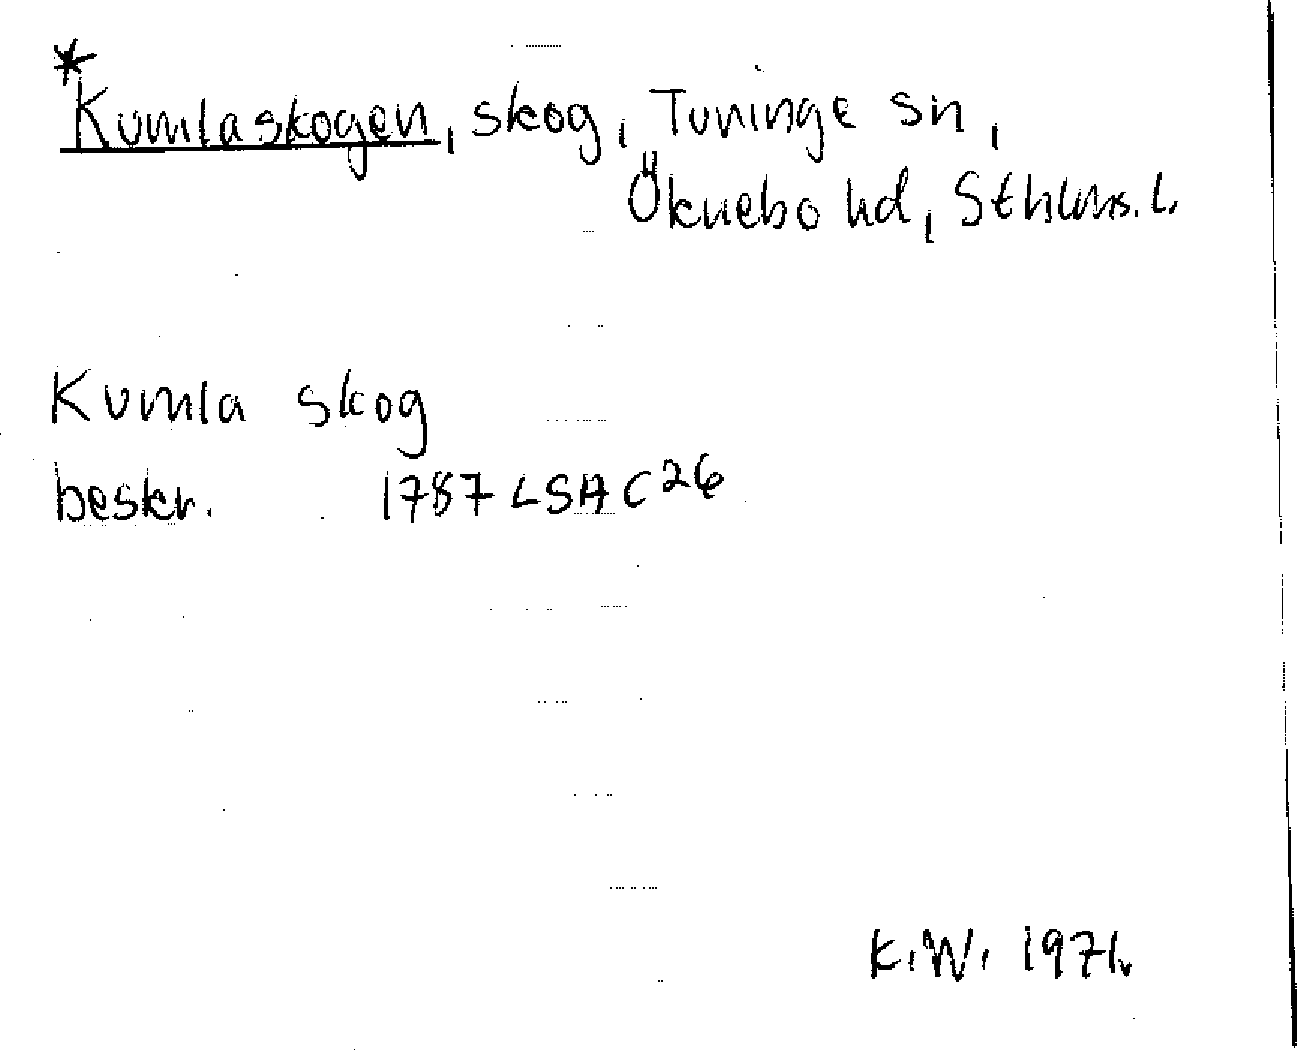 *
Kumlaskogen, skog, Tuninge sn,
Öknebo hd, Sthlms. l.
Kumla skog
beskr. 1787 LSA C26
K.W. 1971.